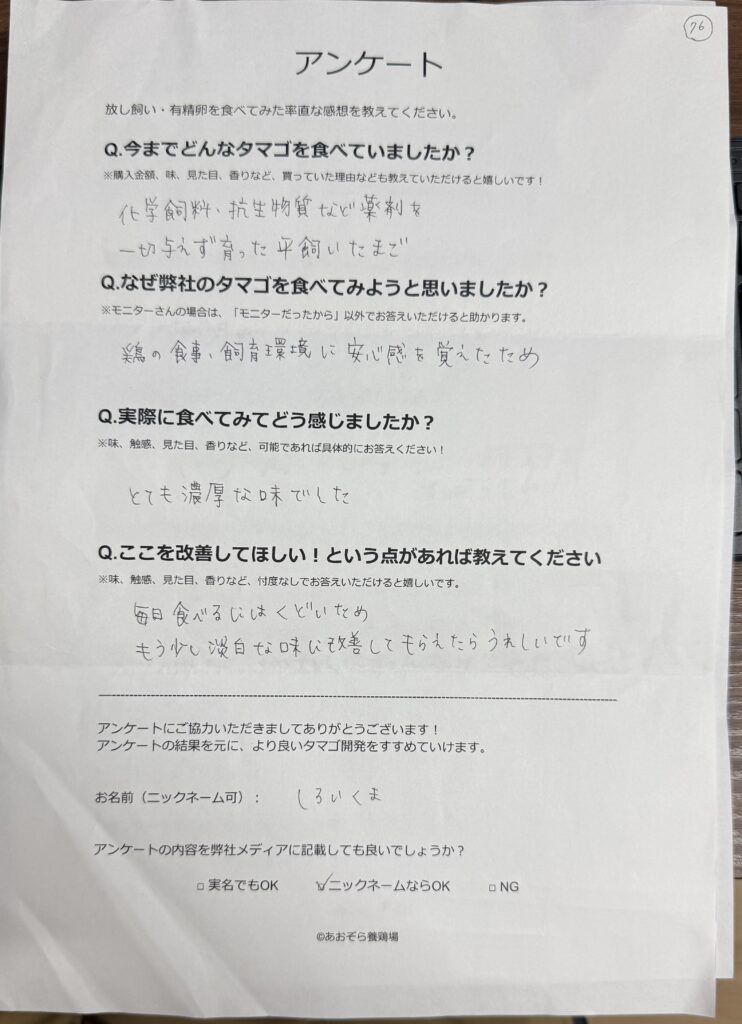 76
アンケート
放し飼い・有精卵を食べてみた率直な感想を教えてください。
Q.今までどんなタマゴを食べていましたか？
※購入金額、味、見た目、香りなど、買っていた理由なども教えていただけると嬉しいです！
化学飼料、抗生物質など薬剤を
一切与えず育った平飼いたまご
Q.なぜ弊社のタマゴを食べてみようと思いましたか？
※モニターさんの場合は、「モニターだったから」以外でお答えいただけると助かります。
鶏の食事、飼育環境に安心感を覚えたため
Q.実際に食べてみてどう感じましたか？
※味、触感、見た目、香りなど、可能であれば具体的にお答えください！
とても濃厚な味でした
Q.ここを改善してほしい！という点があれば教えてください
※味、触感、見た目、香りなど、忖度なしでお答えいただけると嬉しいです。
毎日食べるにはくどいため
もう少し淡白な味に改善してもらえたらうれしいです
アンケートにご協力いただきましてありがとうございます！
アンケートの結果を元に、より良いタマゴ開発をすすめていけます。
お名前（ニックネーム可）： しろいくま
アンケートの内容を弊社メディアに記載しても良いでしょうか？
□ 実名でもOK ☑ニックネームならOK □ NG
©あおぞら養鶏場